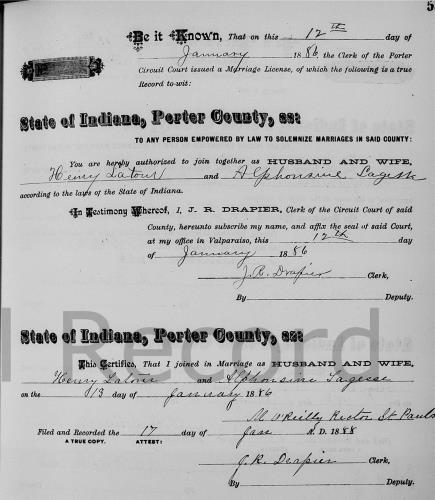 5
Be it Known, That on this 12th day of
January 1886, the Clerk of the Porter
Circuit Court issued a Marriage License, of which the following is a true
Record to-wit:
State of Indiana, Porter County, ss:
TO ANY PERSON EMPOWERED BY LAW TO SOLEMNIZE MARRIAGES IN SAID COUNTY:
You are hereby authorized to join together as HUSBAND AND WIFE,
Henry Latour and Alphonsine Lagesse
according to the laws of the State of Indiana.
In Testimony Whereof, I, J. R. DRAPIER, Clerk of the Circuit Court of said
County, hereunto subscribe my name, and affix the seal of said Court,
at my office in Valparaiso, this 12th day
of January 1886
J. R. Drapier Clerk,
By Deputy.
l Record
State of Indiana, Porter County, ss:
This Certifies, That I joined in Marriage as HUSBAND AND WIFE,
Henry Latour and Alphonsine Lagesse
on the 13 day of January 1886
M O'Reilly Rector St Pauls
Filed and Recorded the 17 day of Jan A. D. 1888
A TRUE COPY. ATTEST:
J. R. Drapier Clerk,
By Deputy.